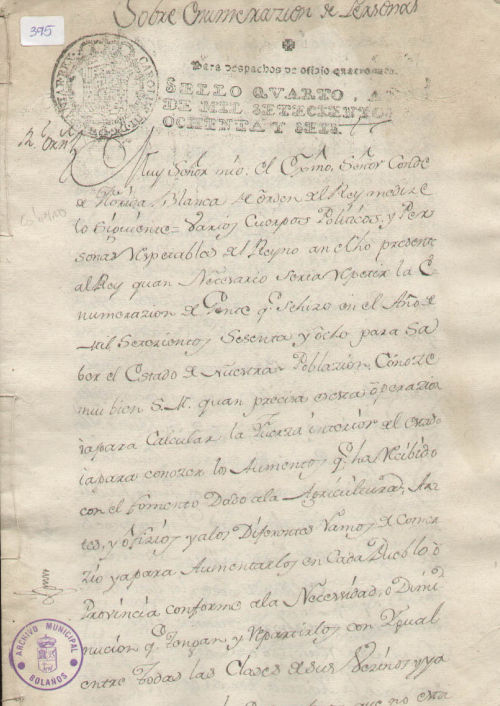 395
Sobre Enumerazion de Personas
Para despachos de oficio quatro mrs.
SELLO QVARTO, A
DE MIL SETECIENTOS
OCHENTA Y SEIS.
Muy Señor mio. el Exmo. Señor Conde
de Florida Blanca de orden del Rey me dize
lo siguiente = Varios Cuerpos Politicos, y Per
sonas Respetables del Reyno an echo presente
al Rey quan Necesario seria Repetir la E
numerazion de Gente q. se hizo en el Año de
mil Setezientos Sesenta y ocho para Sa
ber el Estado de Nuestra Poblazion, Conoze
mui bien S. M. quan precisa es esta operazion
ia para Calcular la fuerza interior del estado
ia para conozer los Aumentos q. ha Recibido
con el fomento Dado ala Agricultura, Ar
tes, y ofizios y alos Diferentes Ramos de Comer
zio ya para Aumentarlos en Cada Pueblo o
Provincia conforme ala Necesidad, o Dimi
nución q. tengan y Repartirlos con Ygual
entre todas las Clases de sus Vezinos y ya
que no esta
ARCHIVO MUNICIPAL
BOLAÑOS